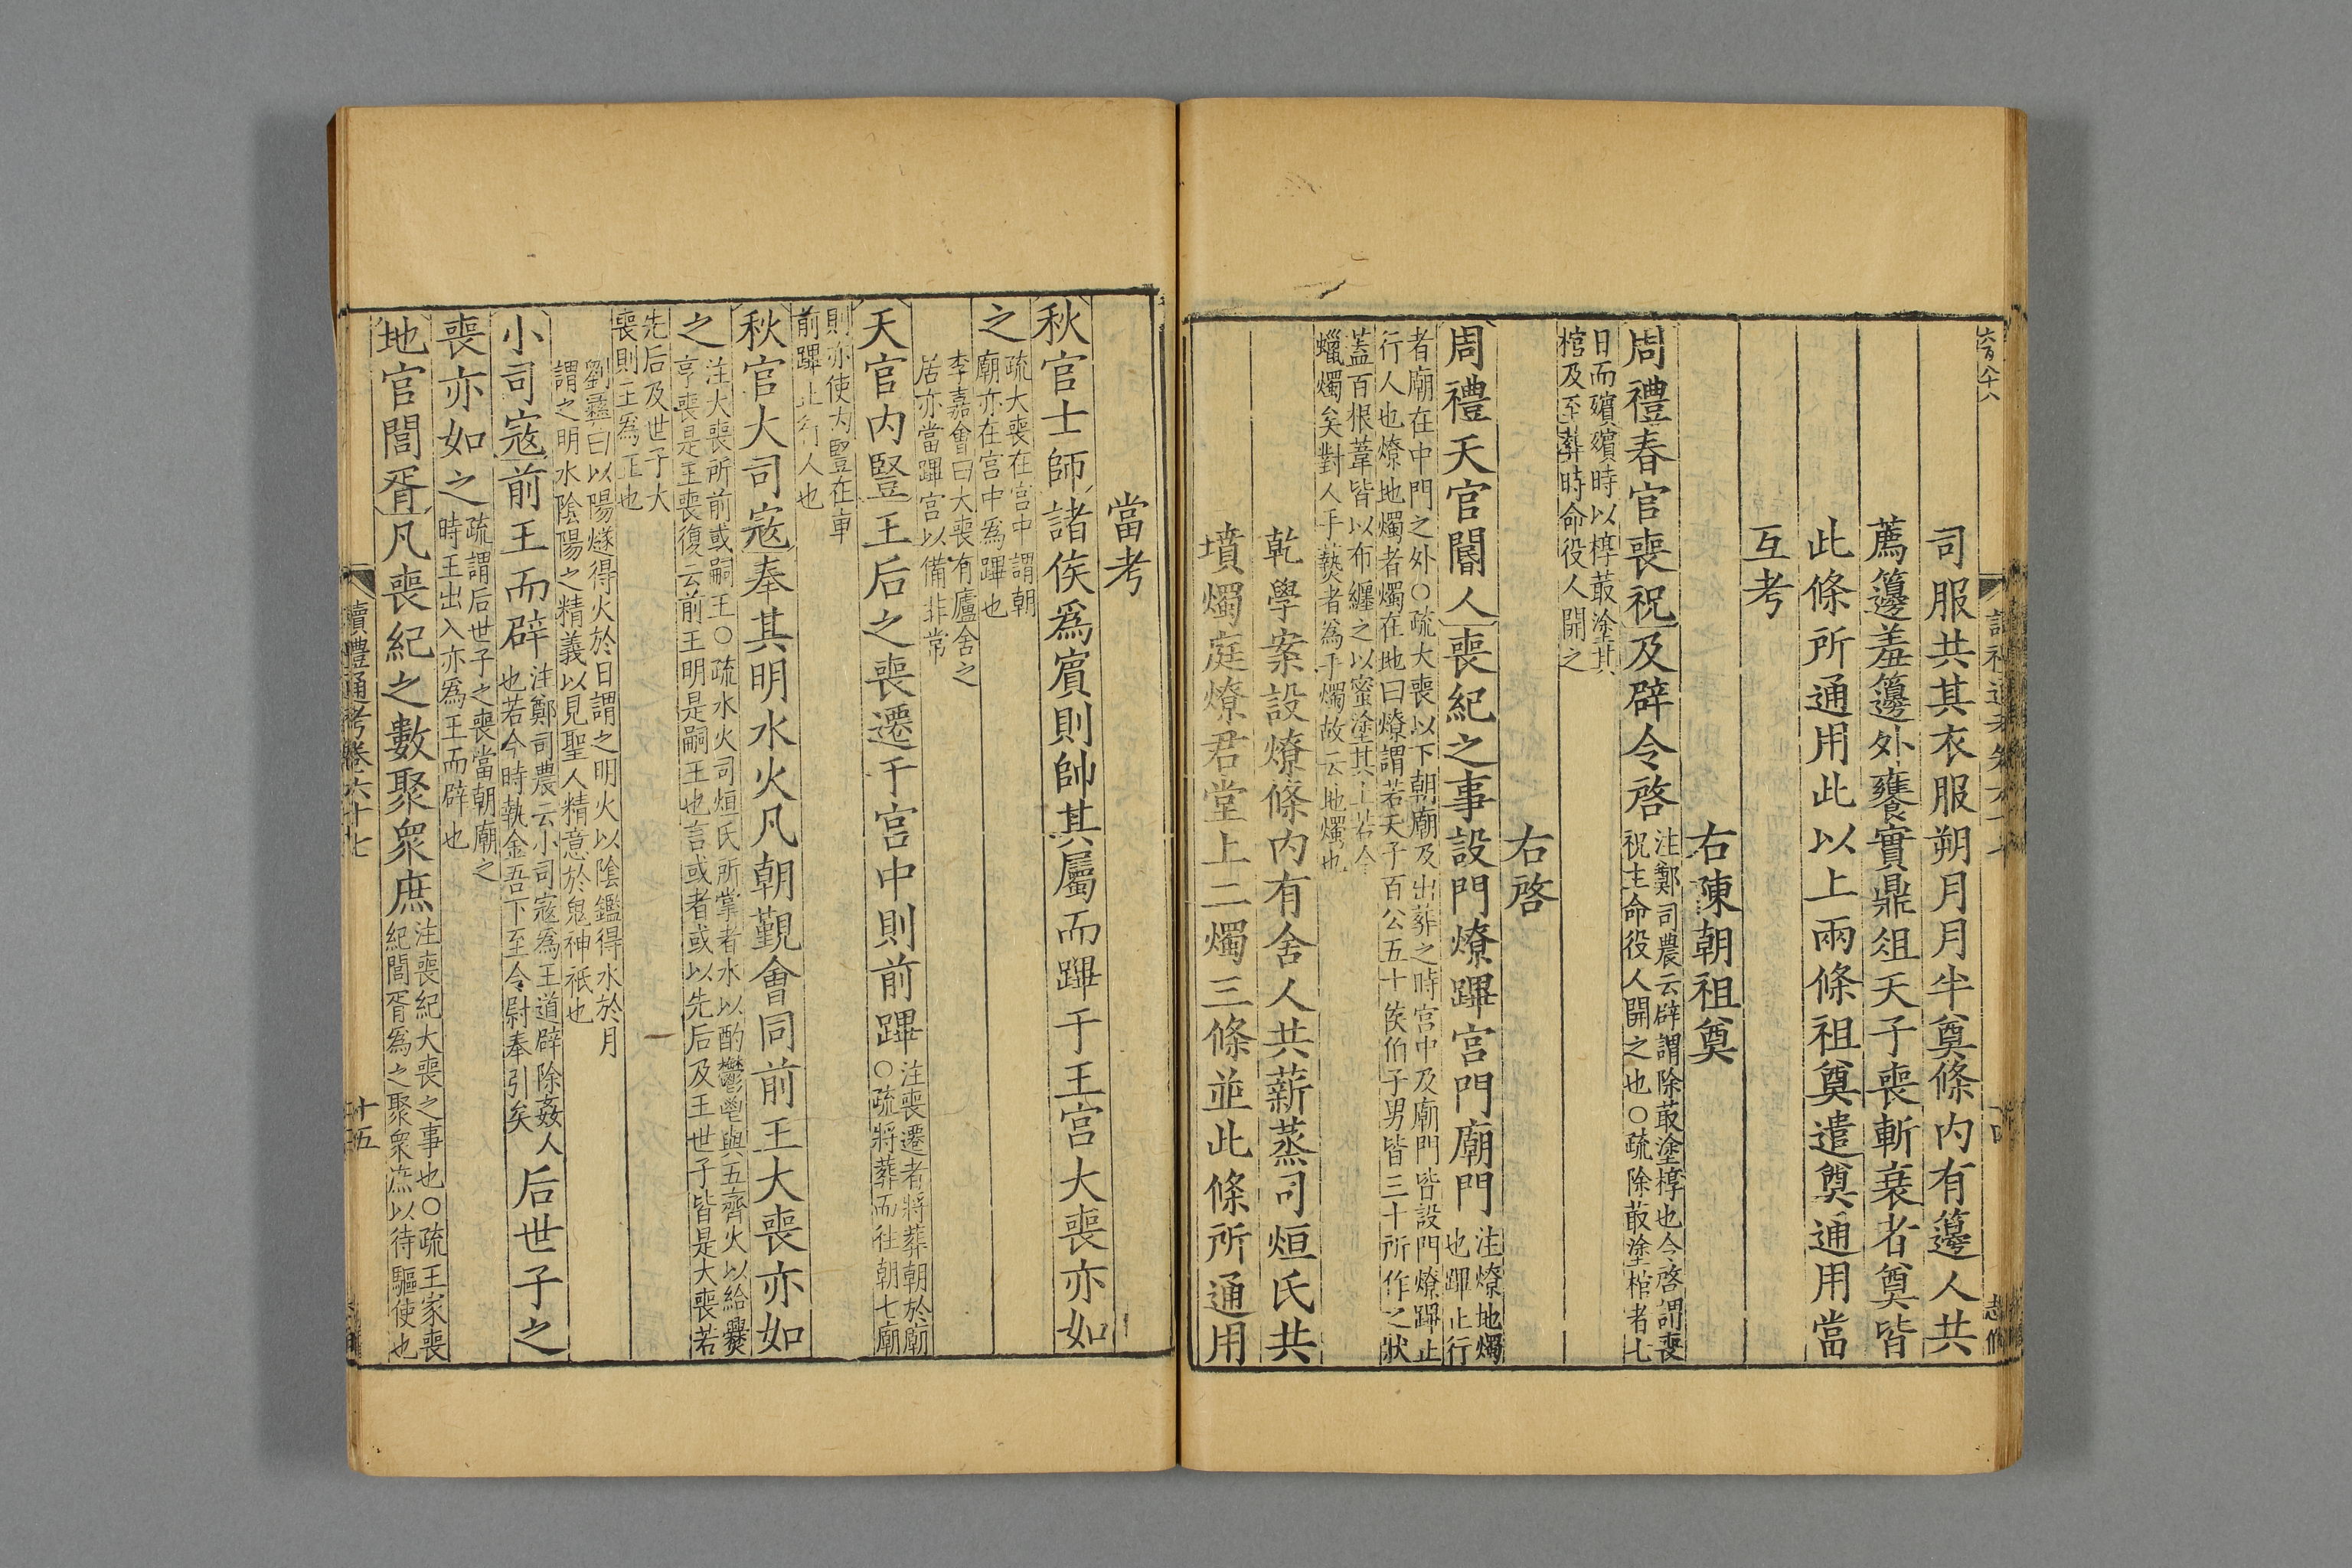 司服共其衣服朔月月半奠條内有籩人共
薦籩羞籩外饔實鼎俎天子喪斬衰者奠皆
此條所通用此以上兩條祖奠遣奠通用當
互考
右陳朝祖奠
周禮春官喪祝及辟令啓
注鄭司農云辟謂除菆塗椁也令啓謂喪
祝主命役人開之也○疏除菆塗棺者七
日而殯殯時以椁菆塗其
棺及至葬時命役人開之
右啓
周禮天官閽人喪紀之事設門燎蹕宮門廟門
注燎地燭
也蹕止行
者廟在中門之外○疏大喪以下朝廟及出葬之時宮中及廟門皆設門燎蹕止
行人也燎地燭者燭在地曰燎謂若天子百公五十侯伯子男皆三十所作之狀
蓋百根葦皆以布纏之以蜜塗其上若今
蠟燭矣對人手爇者爲手燭故云地燭也
乾學案設燎條内有舍人共薪蒸司烜氏共
墳燭庭燎君堂上二燭三條並此條所通用
當考
秋官士師諸侯爲賓則帥其屬而蹕于王宮大喪亦如
之
疏大喪在宮中謂朝
廟亦在宮中爲蹕也
李嘉會曰大喪有廬舍之
居亦當蹕宮以備非常
天官内豎王后之喪遷于宮中則前蹕
注喪遷者將葬朝於廟
○疏將葬而往朝七廟
則亦使内豎在車
前蹕止行人也
秋官大司寇奉其明水火凡朝覲會同前王大喪亦如
之
注大喪所前或嗣王○疏水火司烜氏所掌者水以酌鬱鬯與五齊火以給爨
亨喪是王喪復云前王明是嗣王也言或者或以先后及王世子皆是大喪若
先后及世子大
喪則王爲正也
劉彝曰以陽燧得火於日謂之明火以陰鑑得水於月
謂之明水陰陽之精義以見聖人精意於鬼神祇也
小司寇前王而辟
注鄭司農云小司寇爲王道辟除姦人
也若今時執金吾下至令尉奉引矣
后世子之
喪亦如之
疏謂后世子之喪當朝廟之
時王出入亦爲王而辟也
地官閭胥凡喪紀之數聚衆庶
注喪紀大喪之事也○疏王家喪
紀閭胥爲之聚衆庶以待驅使也
讀禮通考卷六十七
十五